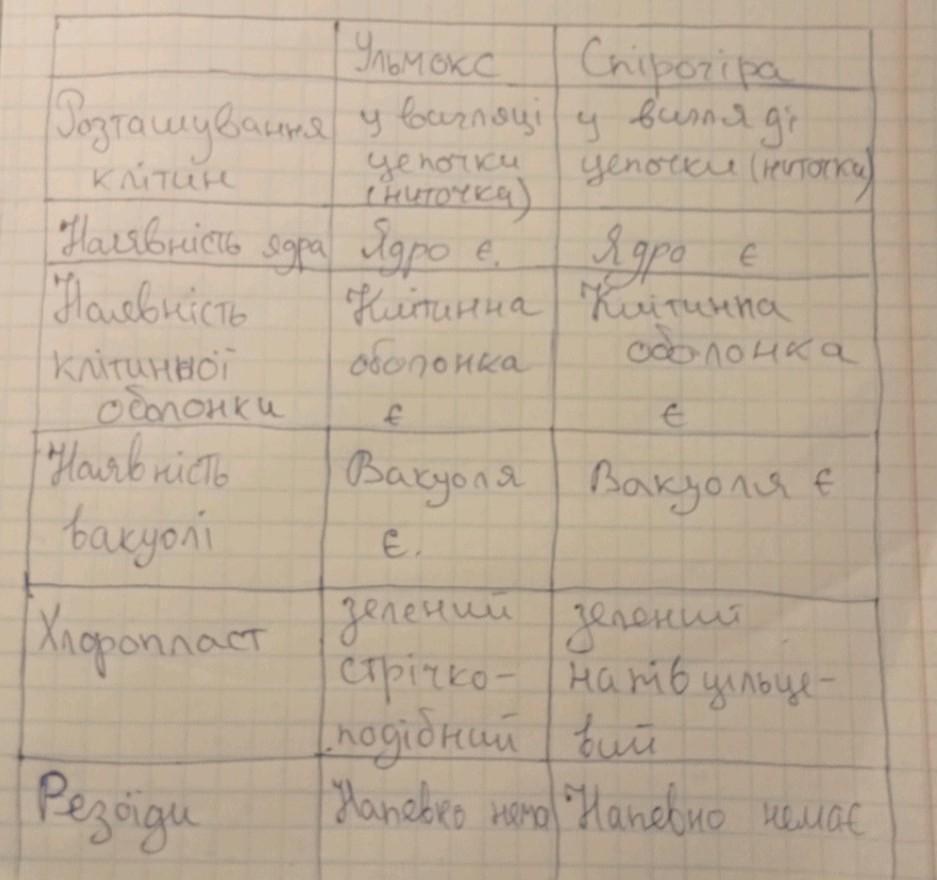 Ульмокс Спірогіра
Розташування у вигляці у вигляді
клітин цепочки цепочки (ниточки)
(ниточка)
Наявність ядра Ядро є. Ядро є
Наявність Клітинна Клітинна
клітинної оболонка оболонка
оболонки є є
Наявність Вакуоля Вакуоля є
вакуолі є.
Хлоропласт зелений зелений
стрічко- напівцільце-
подібний вий
Резоїди Напевно нема Напевно немає